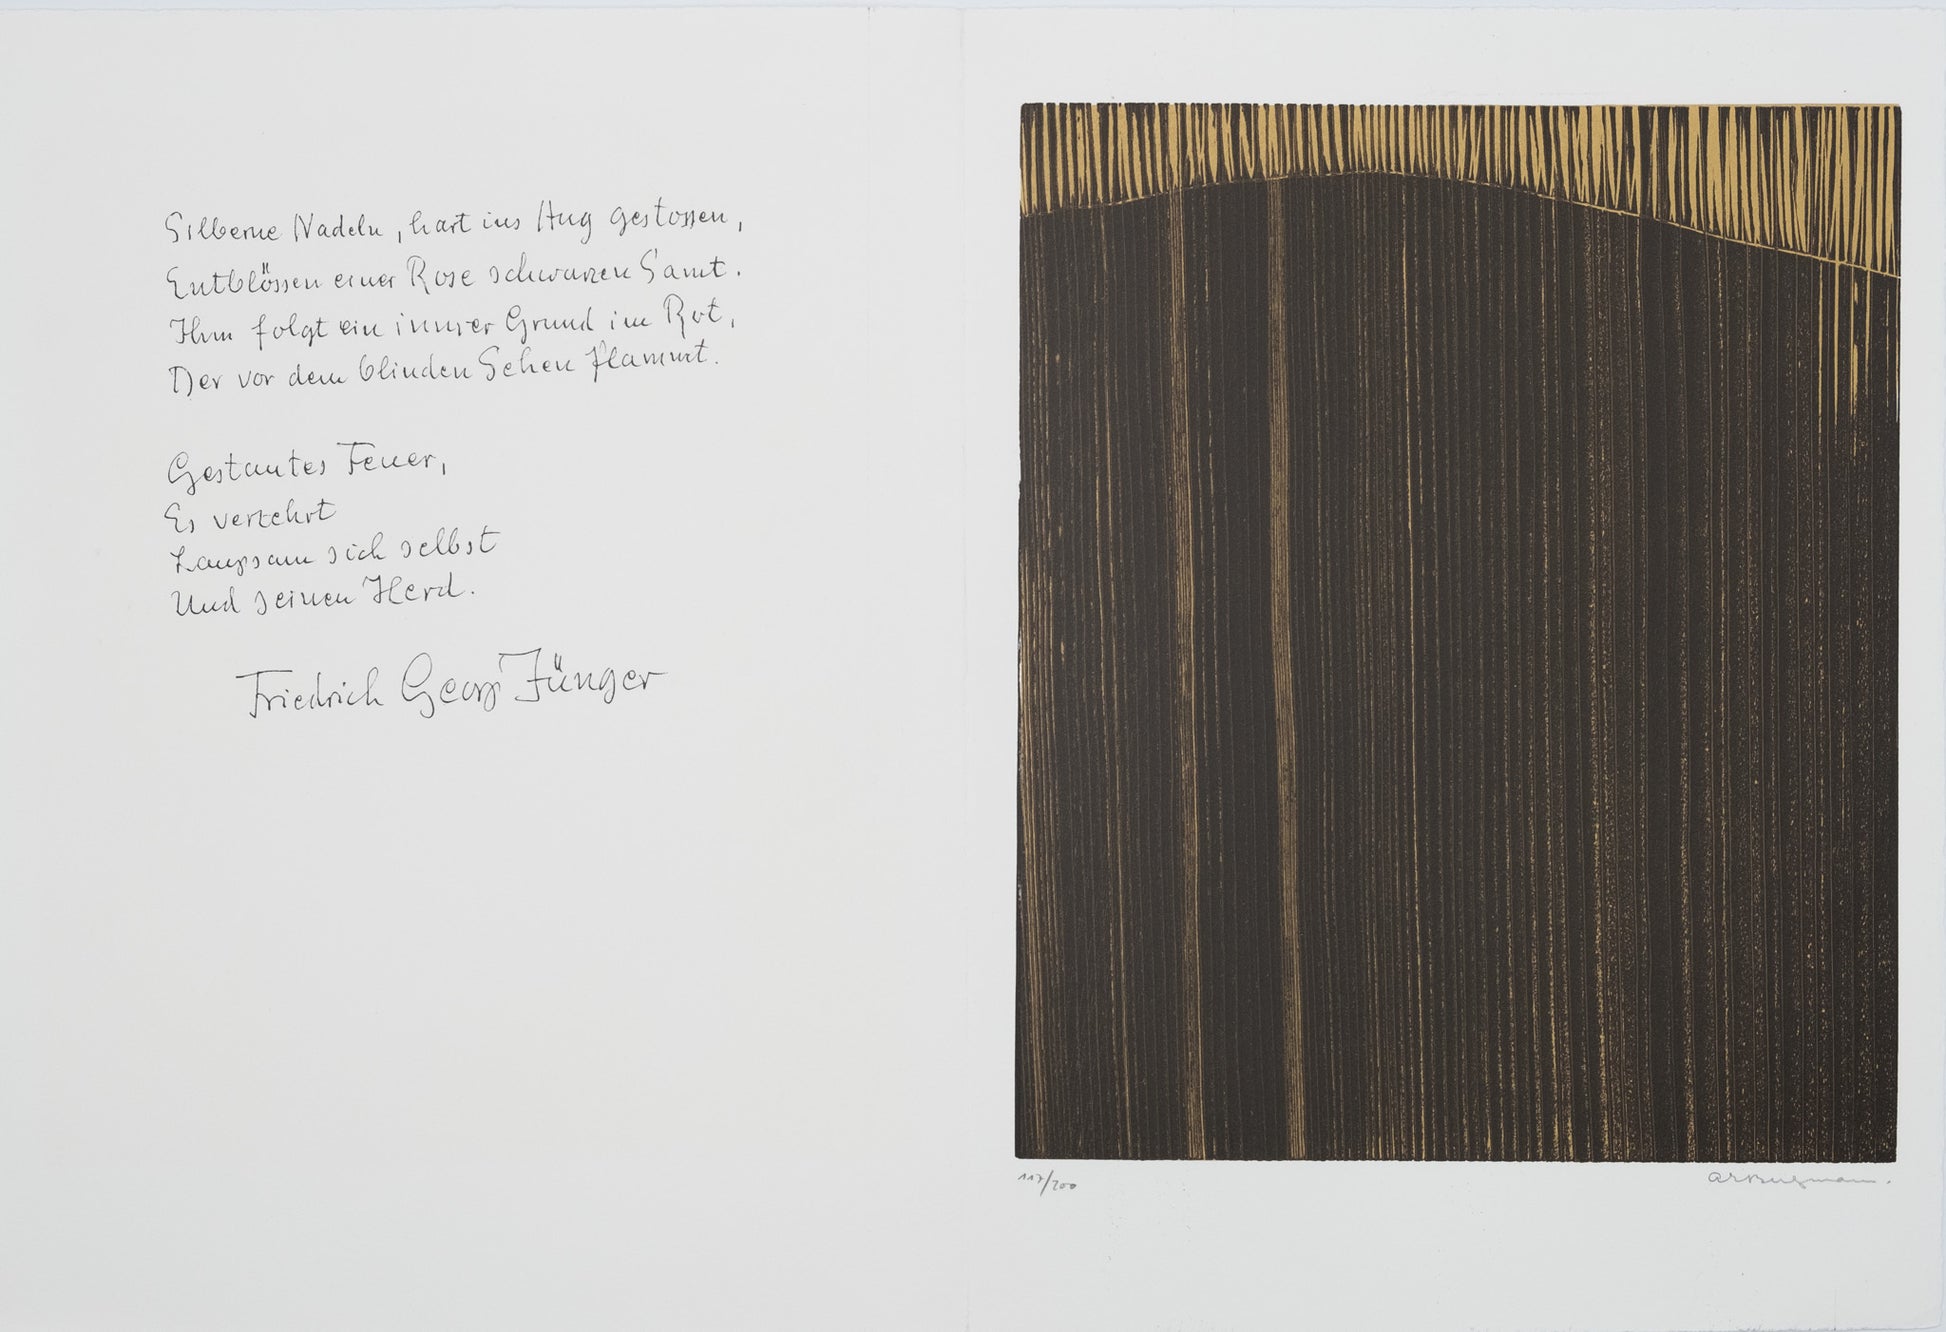 Silberne Nadeln, hart ins Aug gestossen,
Entblössen einer Rose schwarzen Samt.
Ihm folgt ein innrer Grund im Rot,
Der vor dem blinden Sehen flammt.
Gestautes Feuer,
Es verzehrt
Langsam sich selbst
Und seinen Herd.
Friedrich Georg Jünger
117/200